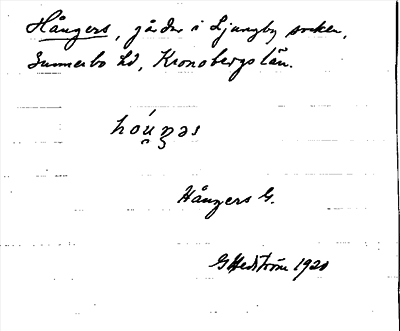 Hångers, gårdar i Ljungby socken,
Sunnerbo hd, Kronobergs län.
Hångers G.
G Hedström 1920